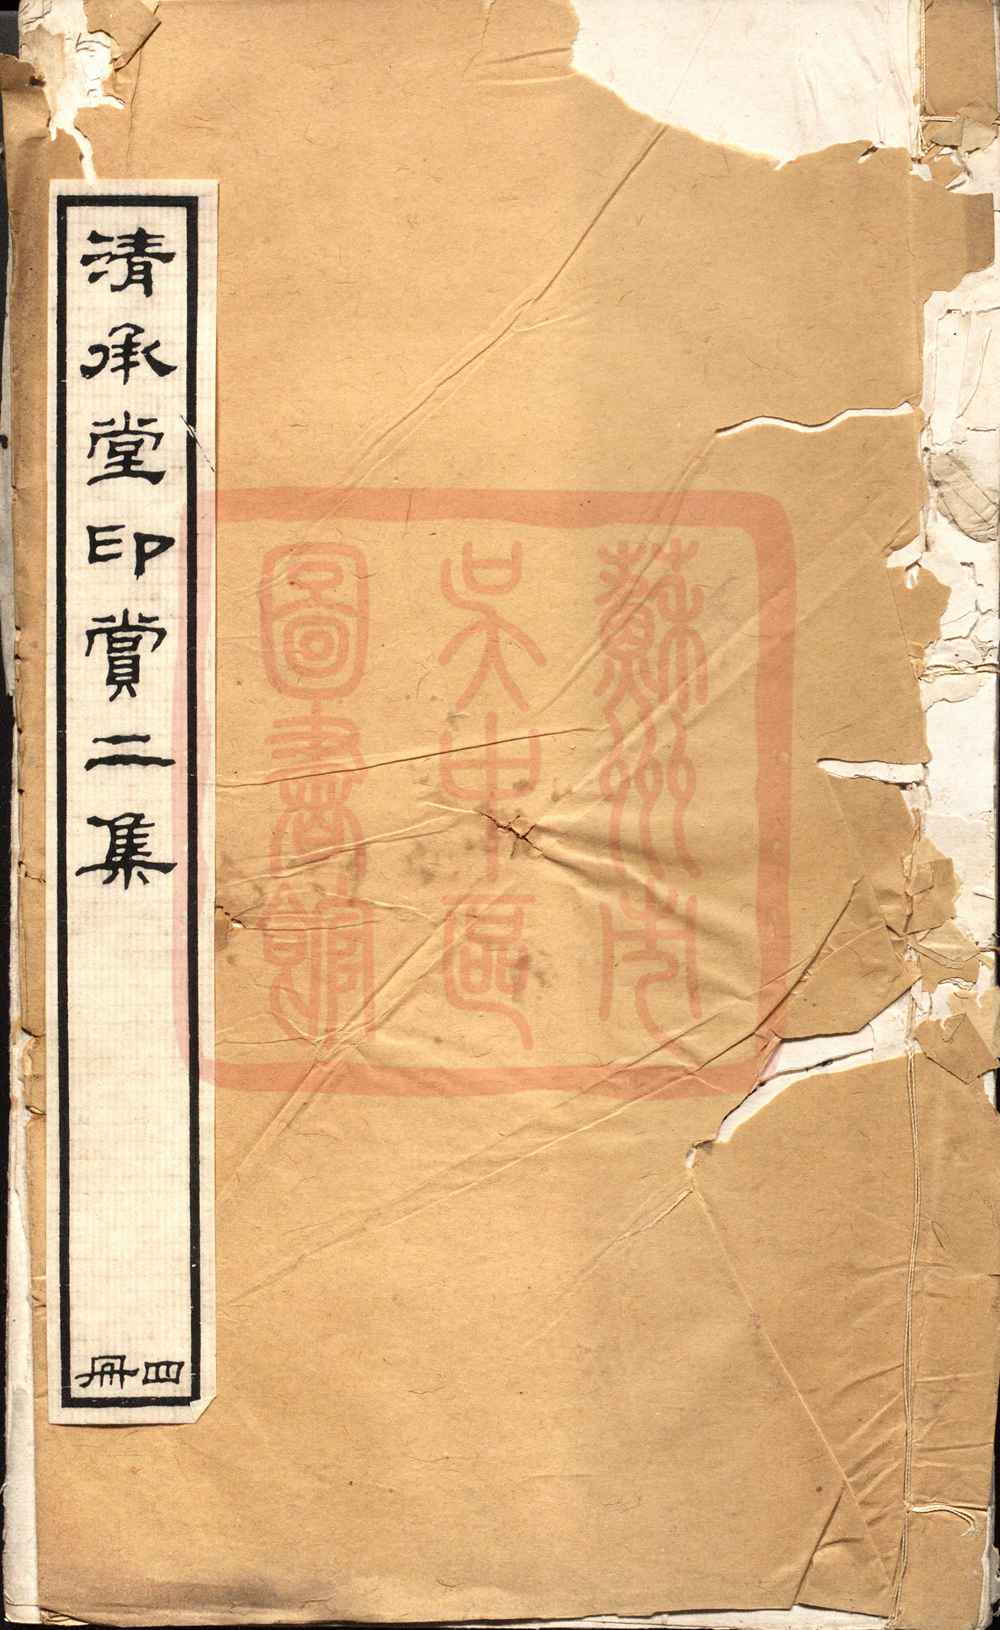 清承堂印賞二集
四冊
蘇州市
吴中區
圖書館